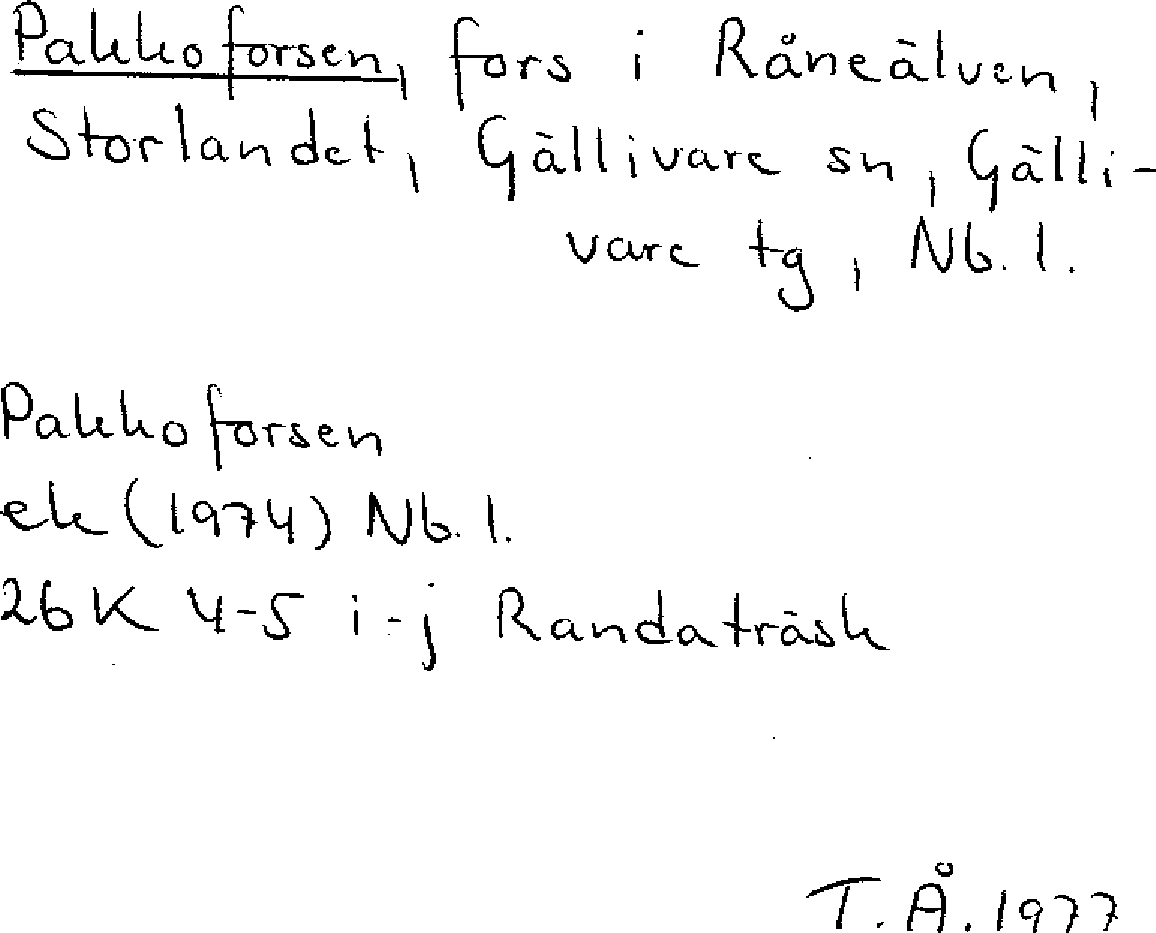 Pakkoforsen, fors i Råneälven,
Storlandet, Gällivare sn, Gälli-
vare tg, Nb. l.
Pakkoforsen
ek (1974) Nb. l.
26K 4-5 i-j Randaträsk
T. Å. 1977